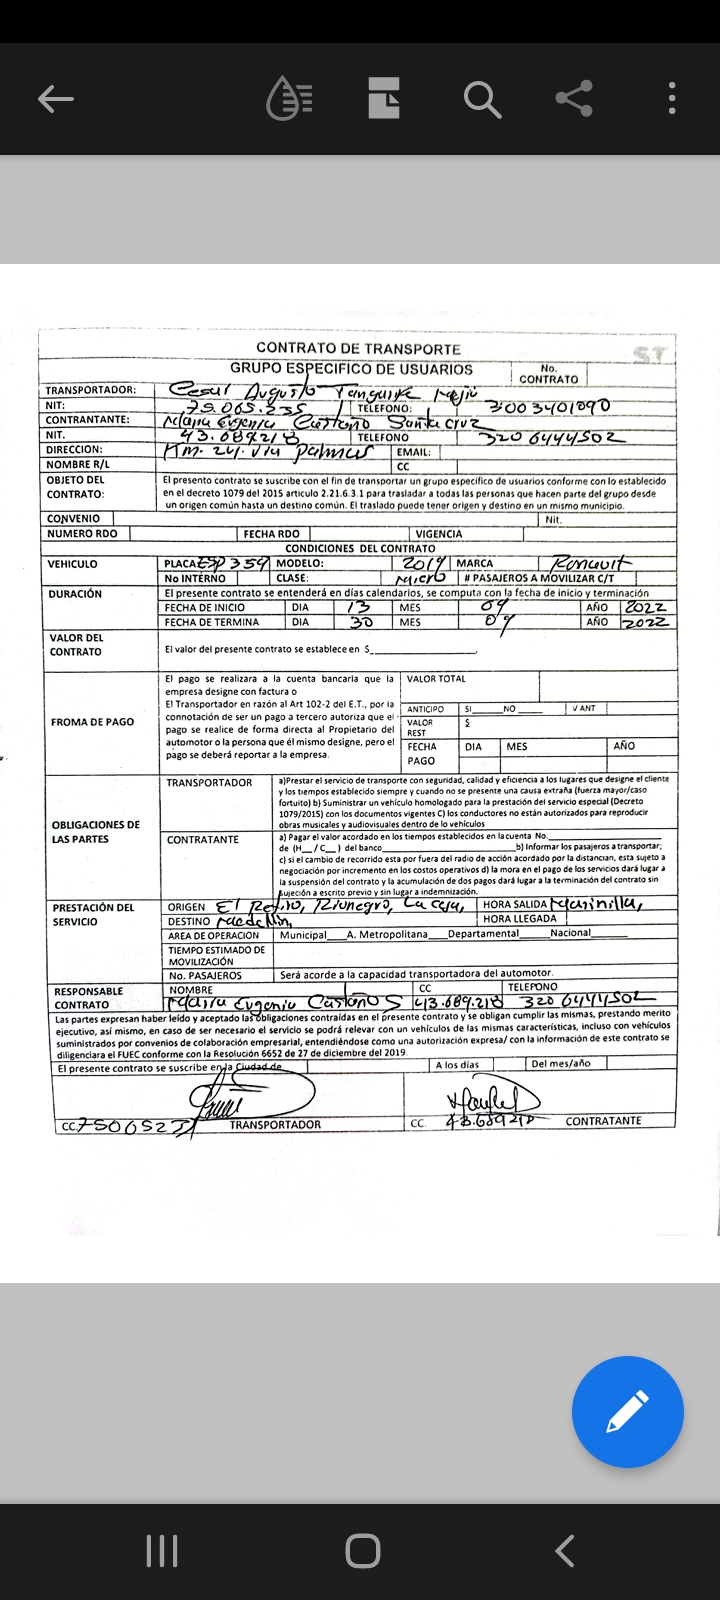 CONTRATO DE TRANSPORTE
GRUPO ESPECIFICO DE USUARIOS No. CONTRATO
TRANSPORTADOR: Cesar Augusto
NIT: 75.065.235 TELEFONO: 3003401090
CONTRANTANTE: Maria Eugenia Castaño Santa cruz
NIT. 43.689218 TELEFONO 320 6444502
DIRECCION: Km. 24. via palmas EMAIL:
NOMBRE R/L CC
OBJETO DEL CONTRATO: El presento contrato se suscribe con el fin de transportar un grupo específico de usuarios conforme con lo establecido
en el decreto 1079 del 2015 articulo 2.21.6.3.1 para trasladar a todas las personas que hacen parte del grupo desde
un origen común hasta un destino común. El traslado puede tener origen y destino en un mismo municipio.
CONVENIO Nit.
NUMERO RDO FECHA RDO VIGENCIA
CONDICIONES DEL CONTRATO
VEHICULO PLACA ESP 359 MODELO: 2019 MARCA Renault
No INTERNO CLASE: Micro # PASAJEROS A MOVILIZAR C/T
DURACIÓN El presente contrato se entenderá en días calendarios, se computa con la fecha de inicio y terminación
FECHA DE INICIO DIA 13 MES 09 AÑO 2022
FECHA DE TERMINA DIA 30 MES 09 AÑO 2022
VALOR DEL CONTRATO El valor del presente contrato se establece en $
FROMA DE PAGO
El pago se realizara a la cuenta bancaria que la
empresa designe con factura o
El Transportador en razón al Art 102-2 del E.T., por la
connotación de ser un pago a tercero autoriza que el
pago se realice de forma directa al Propietario del
automotor o la persona que él mismo designe, pero el
pago se deberá reportar a la empresa.
VALOR TOTAL
ANTICIPO SI___ NO ____ V ANT
VALOR REST $
FECHA PAGO DIA MES AÑO
OBLIGACIONES DE LAS PARTES
TRANSPORTADOR a)Prestar el servicio de transporte con seguridad, calidad y eficiencia a los lugares que designe el cliente
y los tiempos establecido siempre y cuando no se presente una causa extraña (fuerza mayor/caso
fortuito) b) Suministrar un vehículo homologado para la prestación del servicio especial (Decreto
1079/2015) con los documentos vigentes C) los conductores no están autorizados para reproducir
obras musicales y audiovisuales dentro de lo vehículos
CONTRATANTE a) Pagar el valor acordado en los tiempos establecidos en la cuenta No.
de (H__/ C__) del banco____ b) Informar los pasajeros a transportar;
c) si el cambio de recorrido esta por fuera del radio de acción acordado por la distancian, esta sujeto a
negociación por incremento en los costos operativos d) la mora en el pago de los servicios dará lugar a
la suspensión del contrato y la acumulación de dos pagos dará lugar a la terminación del contrato sin
sujeción a escrito previo y sin lugar a indemnización.
PRESTACIÓN DEL SERVICIO
ORIGEN El Retiro, Rionegro, La ceja, HORA SALIDA Marinilla,
DESTINO Medellin, HORA LLEGADA
AREA DE OPERACIÓN Municipal___A. Metropolitana___Departamental____Nacional____
TIEMPO ESTIMADO DE MOVILIZACIÓN
No. PASAJEROS Será acorde a la capacidad transportadora del automotor.
RESPONSABLE CONTRATO NOMBRE CC TELEFONO
Maria Eugenia Castaño S 43.689.218 320 6444502
Las partes expresan haber leído y aceptado las obligaciones contraídas en el presente contrato y se obligan cumplir las mismas, prestando merito
ejecutivo, así mismo, en caso de ser necesario el servicio se podrá relevar con un vehículos de las mismas características, incluso con vehículos
suministrados por convenios de colaboración empresarial, entendiéndose como una autorización expresa/ con la información de este contrato se
diligenciara el FUEC conforme con la Resolución 6652 de 27 de diciembre del 2019.
El presente contrato se suscribe en la Ciudad de A los días Del mes/año
CC. TRANSPORTADOR CC 43.689218 CONTRATANTE